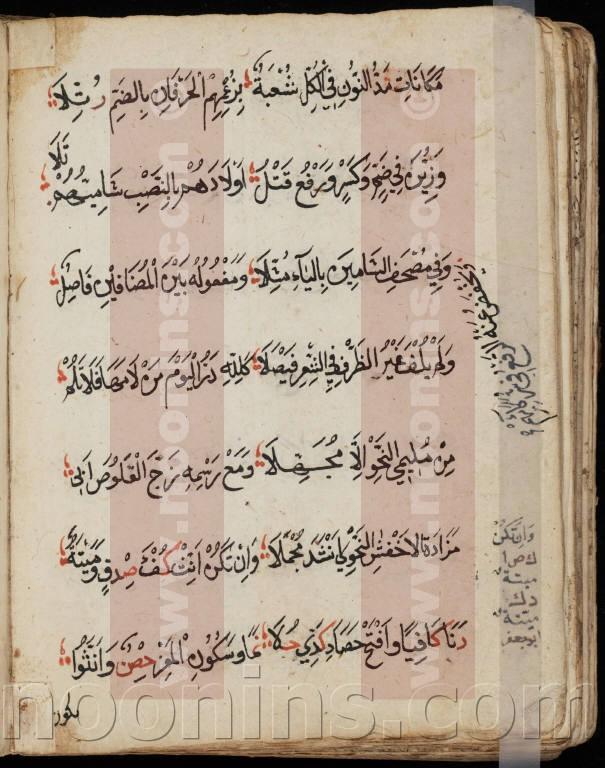 مَكَانَاتِ مَدَّ النُّونَ فِي الْكُلِّ شُعْبَةٌ بِزَعْمِهِمُ الْحَرْفَانِ بِالضَّمِّ رُتِّلَا
وَزَيَّنَ فِي ضَمٍّ وَكَسْرٍ وَرَفْعُ قَتْلَ أَوْلَادَهُمْ بِالنَّصْبِ شَامِيُّهُمْ تَلَا
وَيُخْفَضُ عَنْهُ الرَّفْعُ فِي شُرَكَاؤُهُمْ
وَفِي مُصْحَفِ الشَّامِينَ بِالْيَاءِ مُثِّلَا وَمَفْعُولُهُ بَيْنَ الْمُضَافَيْنِ فَاصِلٌ
وَلَمْ يُلْفَ غَيْرُ الظَّرْفِ فِي الشِّعْرِ فَيْصَلَا كَلِلَّهِ دَرُّ الْيَوْمَ مَنْ لَامَهَا فَلَا تَلُمْ
مِنْ مُلِيمِي النَّحْوِ إِلَّا مُجَهِّلَا وَمَعْ رَسْمِهِ زَجَّ الْقَلُوصَ أَبِي
مَزَادَةَ الْأَخْفَشُ النَّحْوِيُّ أَنْشَدَ مُجْمِلَا وَإِنْ تَكُنْ أَنِّثْ كُفْؤَ صِدْقٍ وَمَيْتَةٌ
دَنَا كَافِيًا وَافْتَحْ حَصَادِ كَذِي حُلَا نَمَا وَسُكُونُ الْمَعْزِ حِصْنٌ وَأَنَّثُوا
وان تكن
ك ص ا
ميتة
د ك
ميتة
ابو جعفر
يكون
www.noonins.com ©
www.noonins.com ©
noonins.com